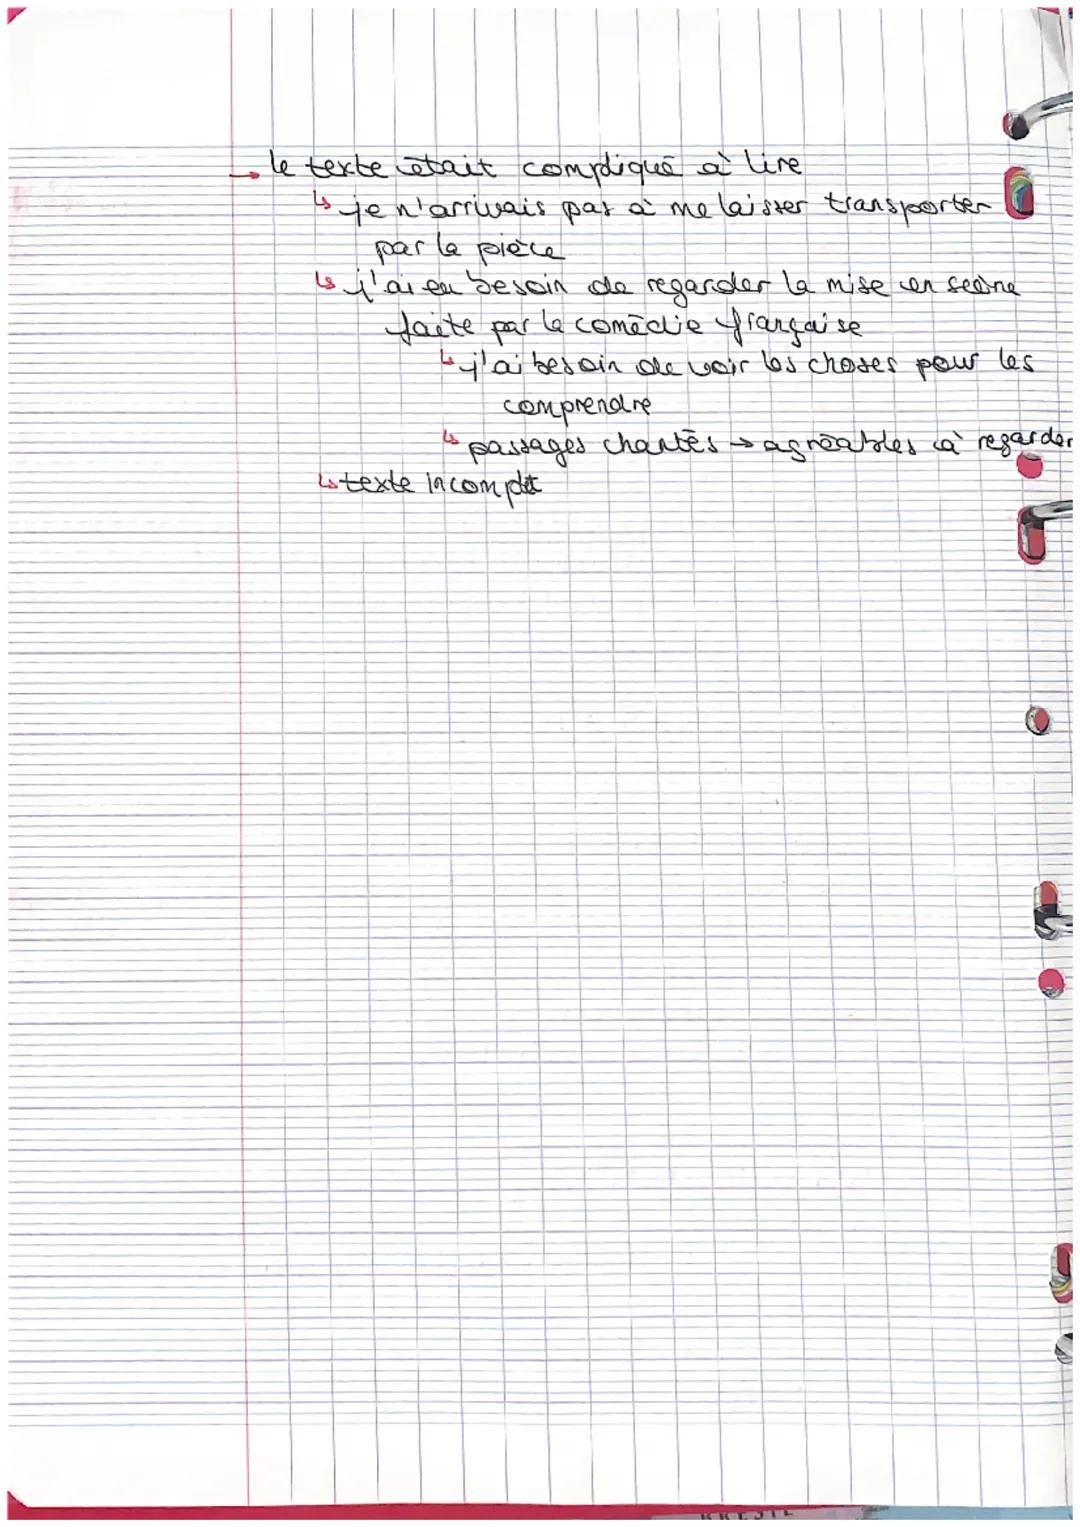 → le texte était compliqué à lire
↳ je n'arrivais pas à me laisser transporter
par la pièce
↳ j'ai eu besoin de regarder la mise en scène
faite par la comédie française
↳ j'ai besoin de voir les choses pour les
comprendre
↳ passages chantés → agréables à regarder
↳ texte incomplet